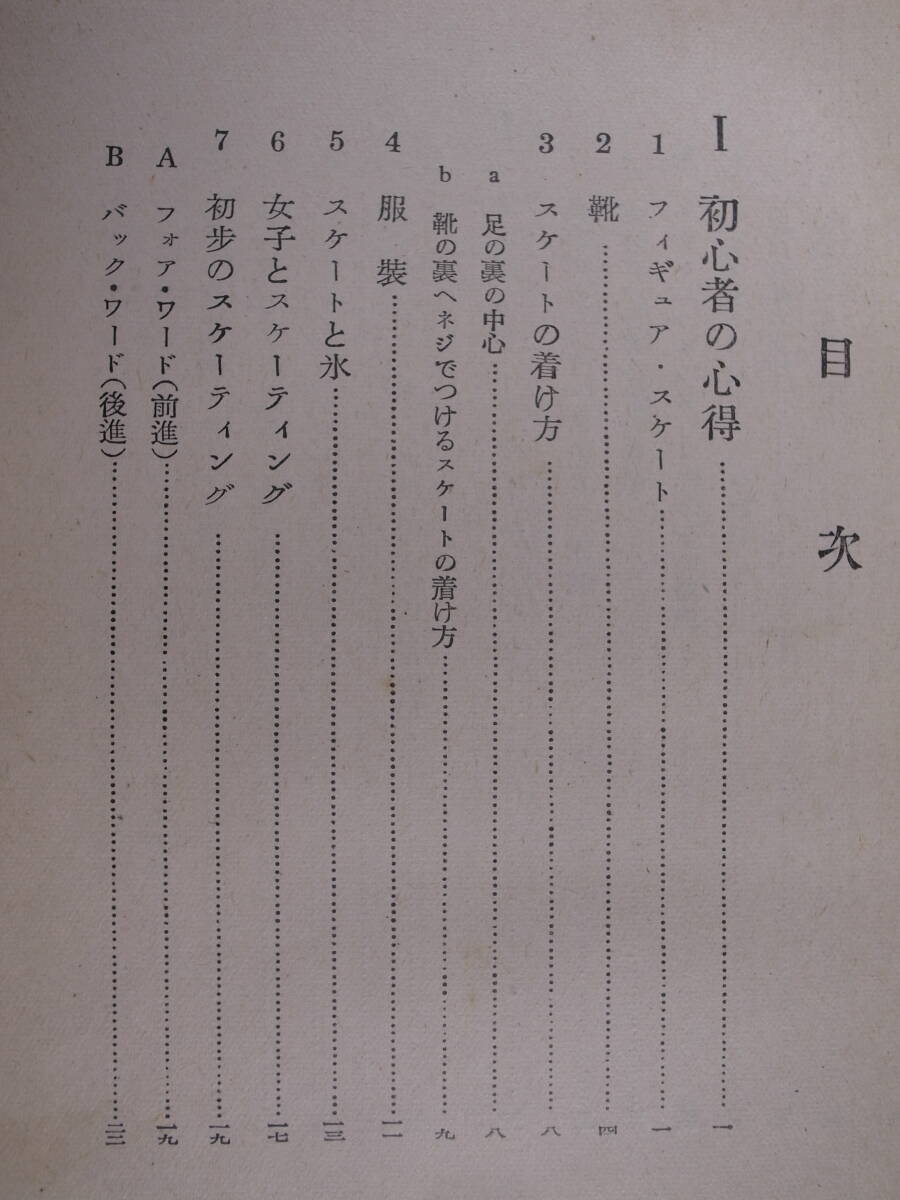 目次
I 初心者の心得……一
1 フィギュア・スケート……一
2 靴……四
3 スケートの着け方……八
a 足の裏の中心……八
b 靴の裏へネジでつけるスケートの着け方……九
4 服裝……一一
5 スケートと氷……一三
6 女子とスケーティング……一七
7 初步のスケーティング……一九
A フォア・ワード(前進)……一九
B バック・ワード(後進)……二三